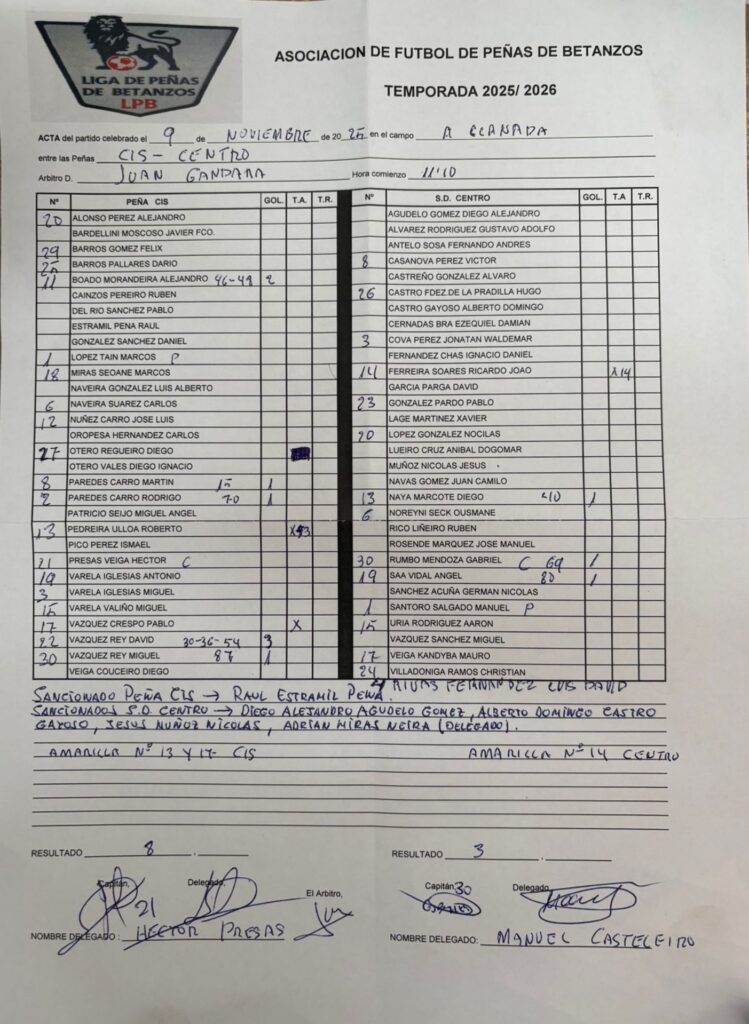 LIGA DE PEÑAS
DE BETANZOS
LPB
ASOCIACION DE FUTBOL DE PEÑAS DE BETANZOS
TEMPORADA 2025/ 2026
ACTA del partido celebrado el 9 de NOVIEMBRE de 2025 en el campo A CLANADA
entre las Peñas CIS - CENTRO
Arbitro D. JUAN GANDARA Hora comienzo 11'10
Nº PEÑA CIS GOL. T.A. T.R. Nº S.D. CENTRO GOL. T.A T.R.
20 ALONSO PEREZ ALEJANDRO AGUDELO GOMEZ DIEGO ALEJANDRO
BARDELLINI MOSCOSO JAVIER FCO. ALVAREZ RODRIGUEZ GUSTAVO ADOLFO
29 BARROS GOMEZ FELIX ANTELO SOSA FERNANDO ANDRES
25 BARROS PALLARES DARIO 8 CASANOVA PEREZ VICTOR
11 BOADO MORANDEIRA ALEJANDRO 46-49 2 CASTREÑO GONZALEZ ALVARO
CAINZOS PEREIRO RUBEN 26 CASTRO FDEZ.DE LA PRADILLA HUGO
DEL RIO SANCHEZ PABLO CASTRO GAYOSO ALBERTO DOMINGO
ESTRAMIL PENA RAUL CERNADAS BRA EZEQUIEL DAMIAN
GONZALEZ SANCHEZ DANIEL 3 COVA PEREZ JONATAN WALDEMAR
1 LOPEZ TAIN MARCOS P FERNANDEZ CHAS IGNACIO DANIEL
18 MIRAS SEOANE MARCOS 14 FERREIRA SOARES RICARDO JOAO X14
NAVEIRA GONZALEZ LUIS ALBERTO GARCIA PARGA DAVID
6 NAVEIRA SUAREZ CARLOS 23 GONZALEZ PARDO PABLO
12 NUÑEZ CARRO JOSE LUIS LAGE MARTINEZ XAVIER
OROPESA HERNANDEZ CARLOS 20 LOPEZ GONZALEZ NOCILAS
27 OTERO REGUEIRO DIEGO LUEIRO CRUZ ANIBAL DOGOMAR
OTERO VALES DIEGO IGNACIO MUÑOZ NICOLAS JESUS
8 PAREDES CARRO MARTIN 15 1 NAVAS GOMEZ JUAN CAMILO
2 PAREDES CARRO RODRIGO 70 1 13 NAYA MARCOTE DIEGO 40 1
PATRICIO SEIJO MIGUEL ANGEL 6 NOREYNI SECK OUSMANE
13 PEDREIRA ULLOA ROBERTO RICO LIÑEIRO RUBEN
PICO PEREZ ISMAEL ROSENDE MARQUEZ JOSE MANUEL
21 PRESAS VEIGA HECTOR C 30 RUMBO MENDOZA GABRIEL C 69 1
19 VARELA IGLESIAS ANTONIO 19 SAA VIDAL ANGEL 80 1
3 VARELA IGLESIAS MIGUEL SANCHEZ ACUÑA GERMAN NICOLAS
15 VARELA VALIÑO MIGUEL 1 SANTORO SALGADO MANUEL P
17 VAZQUEZ CRESPO PABLO X 15 URIA RODRIGUEZ AARON
22 VAZQUEZ REY DAVID 30-36-54 3 VAZQUEZ SANCHEZ MIGUEL
30 VAZQUEZ REY MIGUEL 87 1 17 VEIGA KANDYBA MAURO
VEIGA COUCEIRO DIEGO 24 VILLADONIGA RAMOS CHRISTIAN
4 RIVAS FERNANDEZ LUIS DAVID
SANCIONADO PEÑA CIS → RAUL ESTRAMIL PENA.
SANCIONADOS S.D. CENTRO → DIEGO ALEJANDRO AGUDELO GOMEZ, ALBERTO DOMINGO CASTRO
GAYOSO, JESUS MUÑOZ NICOLAS, ADRIAN MIRAS NEIRA (DELEGADO).
AMARILLA Nº 13 Y 17 - CIS AMARILLA Nº 14 CENTRO
RESULTADO 8 . RESULTADO 3 .
Capitán, Delegado, El Arbitro, Capitán 30 Delegado
21
NOMBRE DELEGADO : HECTOR PRESAS NOMBRE DELEGADO: MANUEL CASTELEIRO